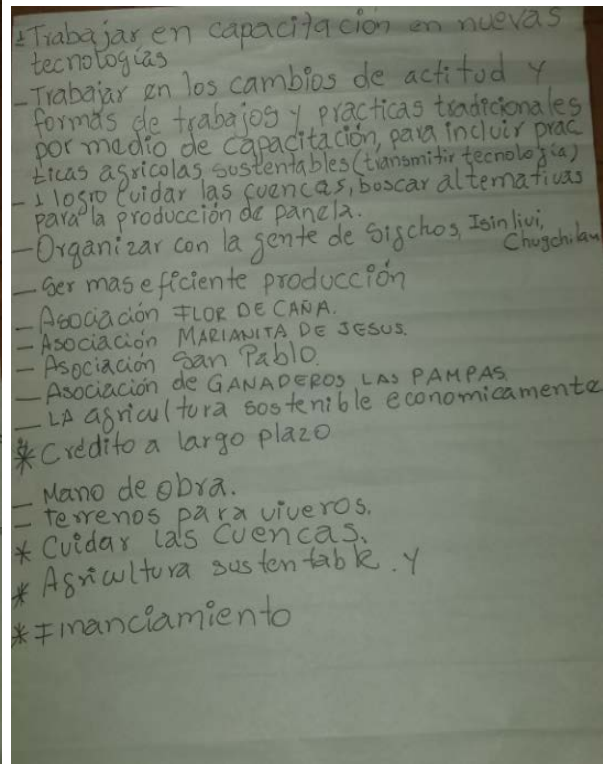 ±Trabajar en capacitación en nuevas
tecnologías
- Trabajar en los cambios de actitud y
formas de trabajos y prácticas tradicionales
por medio de capacitación, para incluir prac
ticas agricolas sustentables (transmitir tecnología)
- 1 logro Cuidar las cuencas, buscar alternativas
para la producción de panela.
- Organizar con la gente de Sigchos, Isinlivi,
Chugchilan
- Ser mas eficiente producción
- Asociación FLOR DE CAÑA.
- Asociación MARIANITA DE JESUS.
- Asociación San Pablo.
- Asociación de GANADEROS LAS PAMPAS
- LA agricultura sostenible economicamente
* Crédito a largo plazo
- Mano de obra.
- terrenos para viveros.
* Cuidar las Cuencas.
* Agricultura sustentable. Y
* Financiamiento